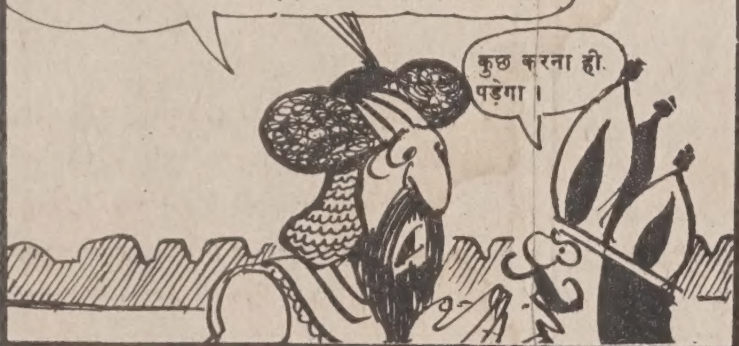 कुछ करना ही.
पड़ेगा ।